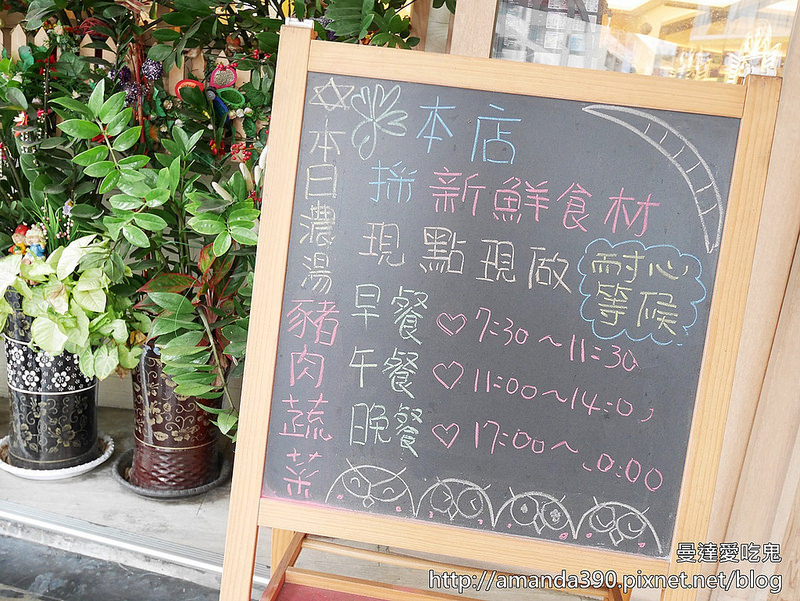 本日濃湯豬肉蔬菜
本店
採新鮮食材
現點現做
耐心
等候
早餐♡7:30~11:30
午餐♡11:00~14:0
晚餐♡17:00~
曼達愛吃鬼
http://amanda390.pixnet.net/blog